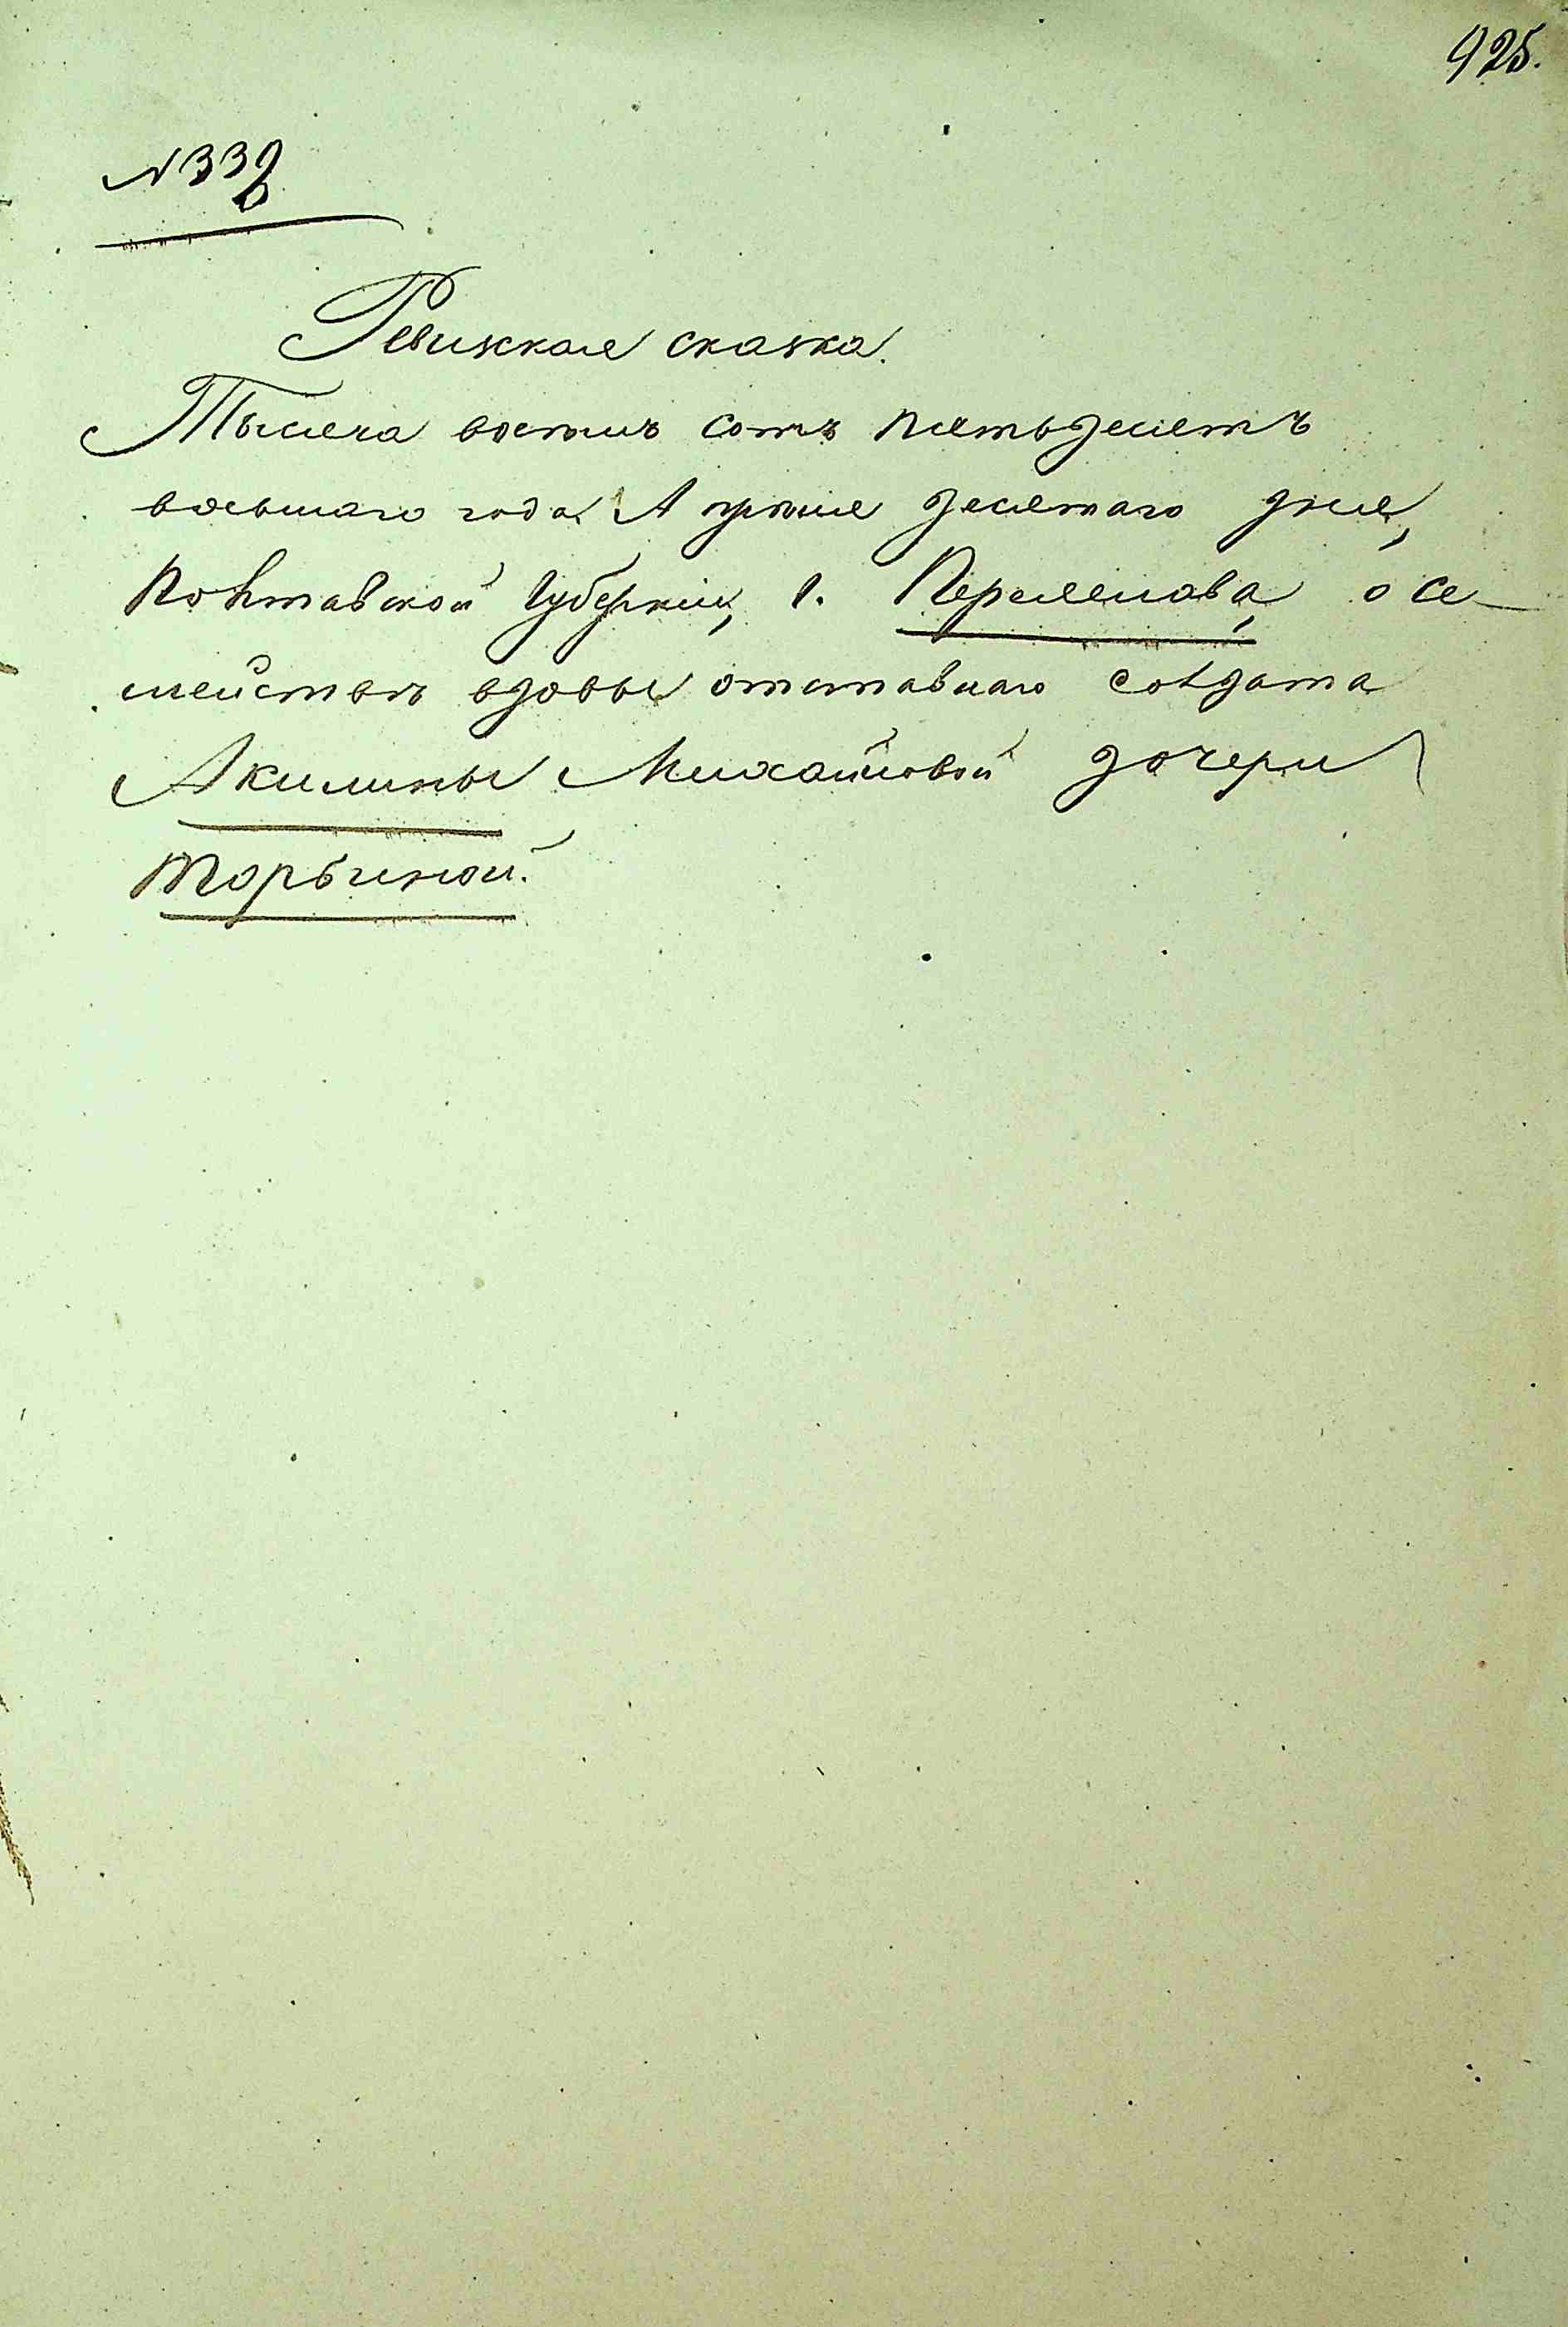 925.
№ 332
Ревизкая сказка.
Тысяча восемь сотъ пятьдесятъ
восьмаго года Апреля десятаго дня,
Полтавской Губерніи, г. Переяслава, о се-
мействе вдовы отставнаго солдата
Акилины Михайловой дочери
Торбиной.